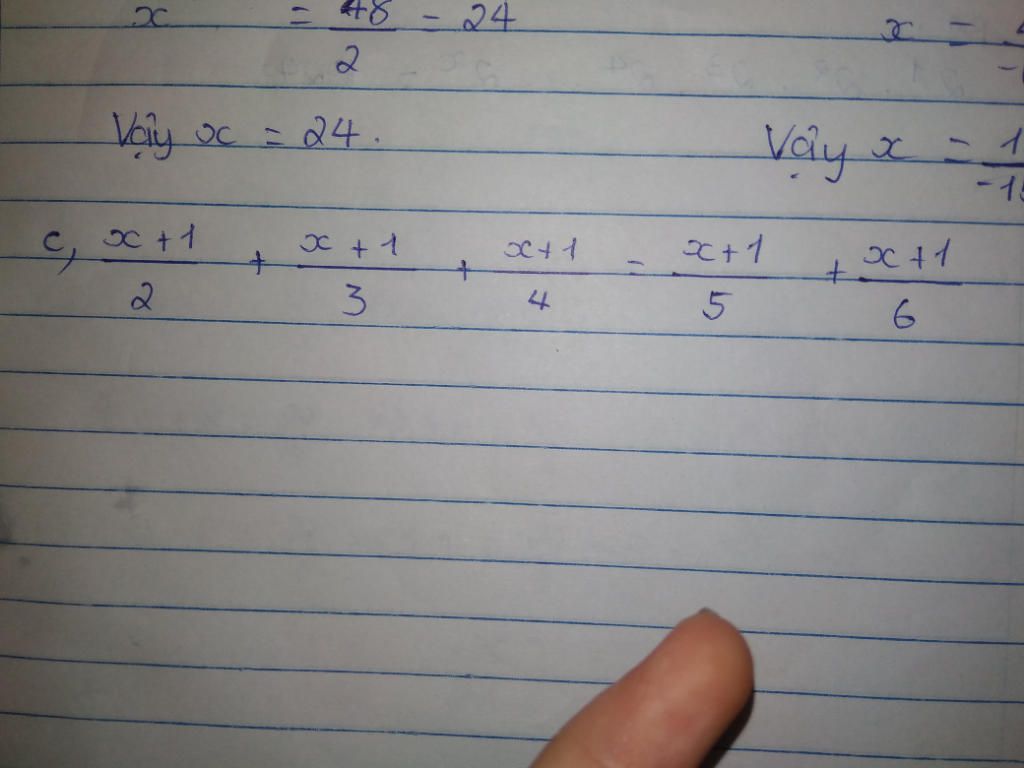 x = 48/2 = 24
x =
Vậy x = 24.
Vậy x =
c, (x+1)/2 + (x+1)/3 + (x+1)/4 = (x+1)/5 + (x+1)/6